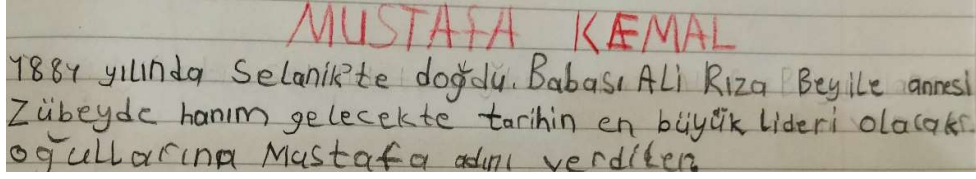 MUSTAFA KEMAL
1881 yılında Selanik'te doğdu. Babası Ali Rıza Bey ile annesi
Zübeyde hanım gelecekte tarihin en büyük lideri olacak
oğullarına Mustafa adını verdiler